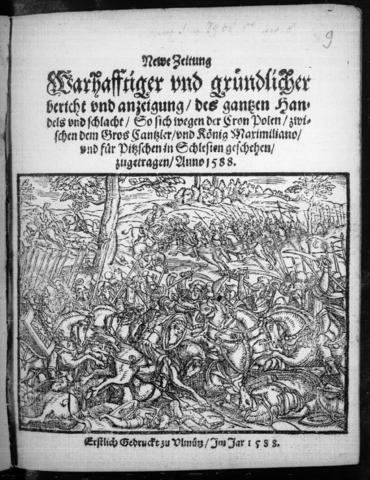 9
Newe Zeitung
Warhafftiger vnd gründlicher
bericht vnd anzeigung / des gantzen Han-
dels vnd schlacht / So sich wegen der Cron Polen / zwi-
schen dem Gros Cantzler / vnd König Maximiliano /
vnd für Pitzschen in Schlesien geschehen /
zugetragen / Anno 1588.
Erstlich Gedruckt zu Vlmütz / Im Jar 1588.